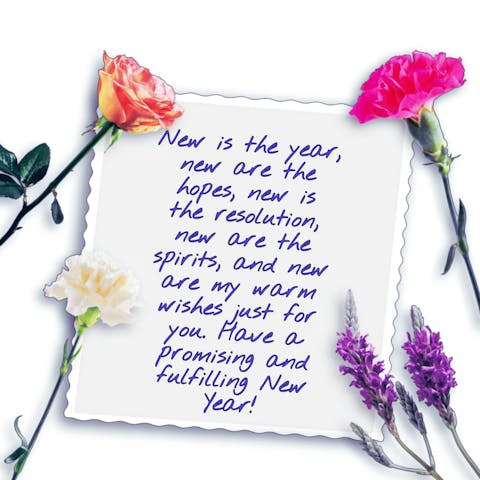 New is the year,
new are the
hopes, new is
the resolution,
new are the
spirits, and new
are my warm
wishes just for
you. Have a
promising and
fulfilling New
Year!